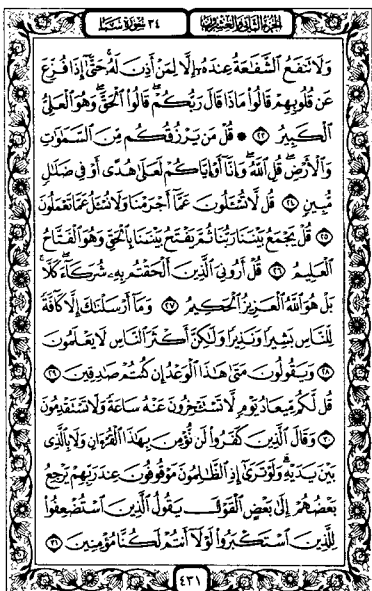 الجزء الثاني والعشرون ٣٤ سورة سبأ
وَلَا تَنفَعُ ٱلشَّفَٰعَةُ عِندَهُۥٓ إِلَّا لِمَنْ أَذِنَ لَهُۥ حَتَّىٰٓ إِذَا فُزِّعَ
عَن قُلُوبِهِمْ قَالُوا۟ مَاذَا قَالَ رَبُّكُمْ ۖ قَالُوا۟ ٱلْحَقَّ ۖ وَهُوَ ٱلْعَلِىُّ
ٱلْكَبِيرُ ۝٢٣ ۞ قُلْ مَن يَرْزُقُكُم مِّنَ ٱلسَّمَٰوَٰتِ
وَٱلْأَرْضِ ۖ قُلِ ٱللَّهُ ۖ وَإِنَّآ أَوْ إِيَّاكُمْ لَعَلَىٰ هُدًى أَوْ فِى ضَلَٰلٍ
مُّبِينٍ ۝٢٤ قُل لَّا تُسْـَٔلُونَ عَمَّآ أَجْرَمْنَا وَلَا نُسْـَٔلُ عَمَّا تَعْمَلُونَ
۝٢٥ قُلْ يَجْمَعُ بَيْنَنَا رَبُّنَا ثُمَّ يَفْتَحُ بَيْنَنَا بِٱلْحَقِّ وَهُوَ ٱلْفَتَّاحُ
ٱلْعَلِيمُ ۝٢٦ قُلْ أَرُونِىَ ٱلَّذِينَ أَلْحَقْتُم بِهِۦ شُرَكَآءَ ۖ كَلَّا ۚ
بَلْ هُوَ ٱللَّهُ ٱلْعَزِيزُ ٱلْحَكِيمُ ۝٢٧ وَمَآ أَرْسَلْنَٰكَ إِلَّا كَآفَّةً
لِّلنَّاسِ بَشِيرًا وَنَذِيرًا وَلَٰكِنَّ أَكْثَرَ ٱلنَّاسِ لَا يَعْلَمُونَ
۝٢٨ وَيَقُولُونَ مَتَىٰ هَٰذَا ٱلْوَعْدُ إِن كُنتُمْ صَٰدِقِينَ ۝٢٩
قُل لَّكُم مِّيعَادُ يَوْمٍ لَّا تَسْتَـْٔخِرُونَ عَنْهُ سَاعَةً وَلَا تَسْتَقْدِمُونَ
۝٣٠ وَقَالَ ٱلَّذِينَ كَفَرُوا۟ لَن نُّؤْمِنَ بِهَٰذَا ٱلْقُرْءَانِ وَلَا بِٱلَّذِى
بَيْنَ يَدَيْهِ ۗ وَلَوْ تَرَىٰٓ إِذِ ٱلظَّٰلِمُونَ مَوْقُوفُونَ عِندَ رَبِّهِمْ يَرْجِعُ
بَعْضُهُمْ إِلَىٰ بَعْضٍ ٱلْقَوْلَ يَقُولُ ٱلَّذِينَ ٱسْتُضْعِفُوا۟
لِلَّذِينَ ٱسْتَكْبَرُوا۟ لَوْلَآ أَنتُمْ لَكُنَّا مُؤْمِنِينَ ۝٣١
٤٣١